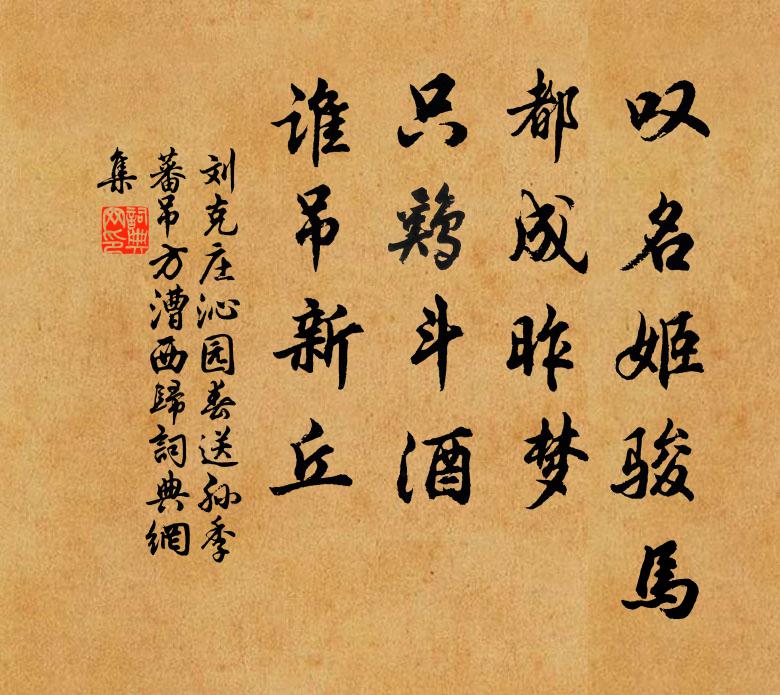 叹名姬骏馬
都成昨梦
只鷄斗酒
谁吊新丘
刘克庄沁园春送孙季
蕃吊方漕西歸詞典網
集
詞典
网印